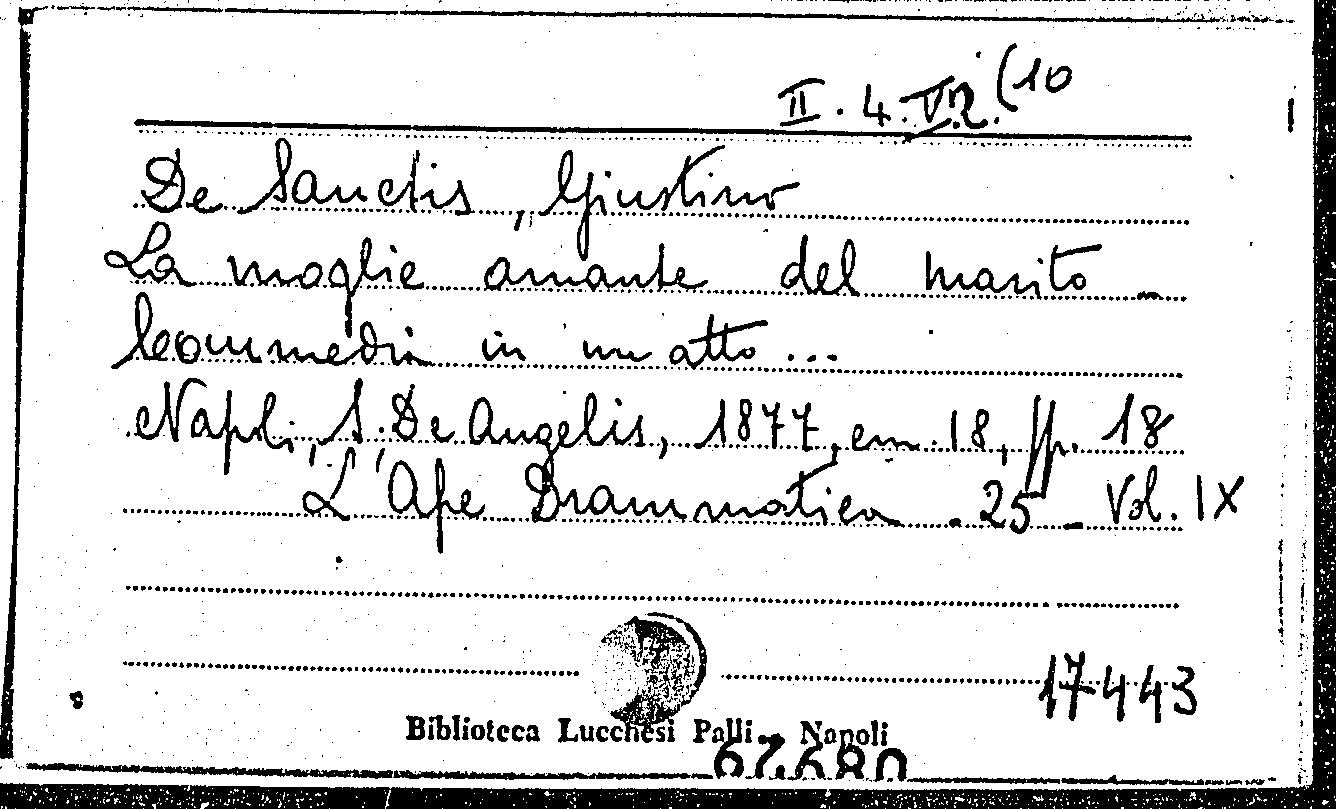 II. 4. VII. (10
De Sanctis, Giustino
La moglie amante del marito -
Commedia in un atto...
Napoli, S. De Angelis, 1877, em. 18, pp. 18
L'Ape Drammatica . 25 - Vol. IX
17443
Biblioteca Lucchesi Palli - Napoli
67680